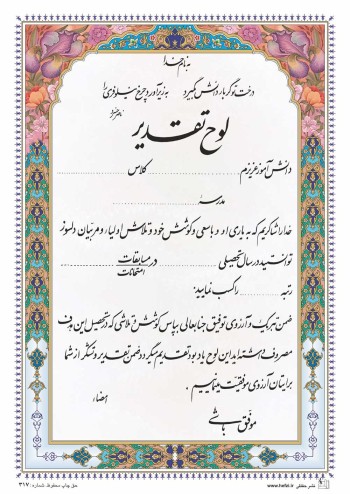 به نام خدا
درخت تو گر بار دانش بگیرد به زیر آوری چرخ نیلوفری را
ناصر خسرو
لوح تقدیر
دانش آموز عزیزم ........ کلاس ........
مدرسه ........
خدا را شاکریم که به یاری او و با سعی و کوشش خود و تلاش اولیاء و مربیان دلسوز
توانستید در سال تحصیلی ........ در مسابقات
امتحانات
رتبه ........ را کسب نمایید.
ضمن تبریک و آرزوی توفیق جنابعالی بپاس کوشش و تلاشی که در تحصیل این هدف
مصروف داشته اید این لوح یادبود تقدیم میگردد و ضمن تقدیر و تشکر از شما
برایتان آرزوی موفقیت مینمائیم.
امضاء
موفق باشی
حق چاپ محفوظ شماره: ۳۱۷
www.hefzi.ir